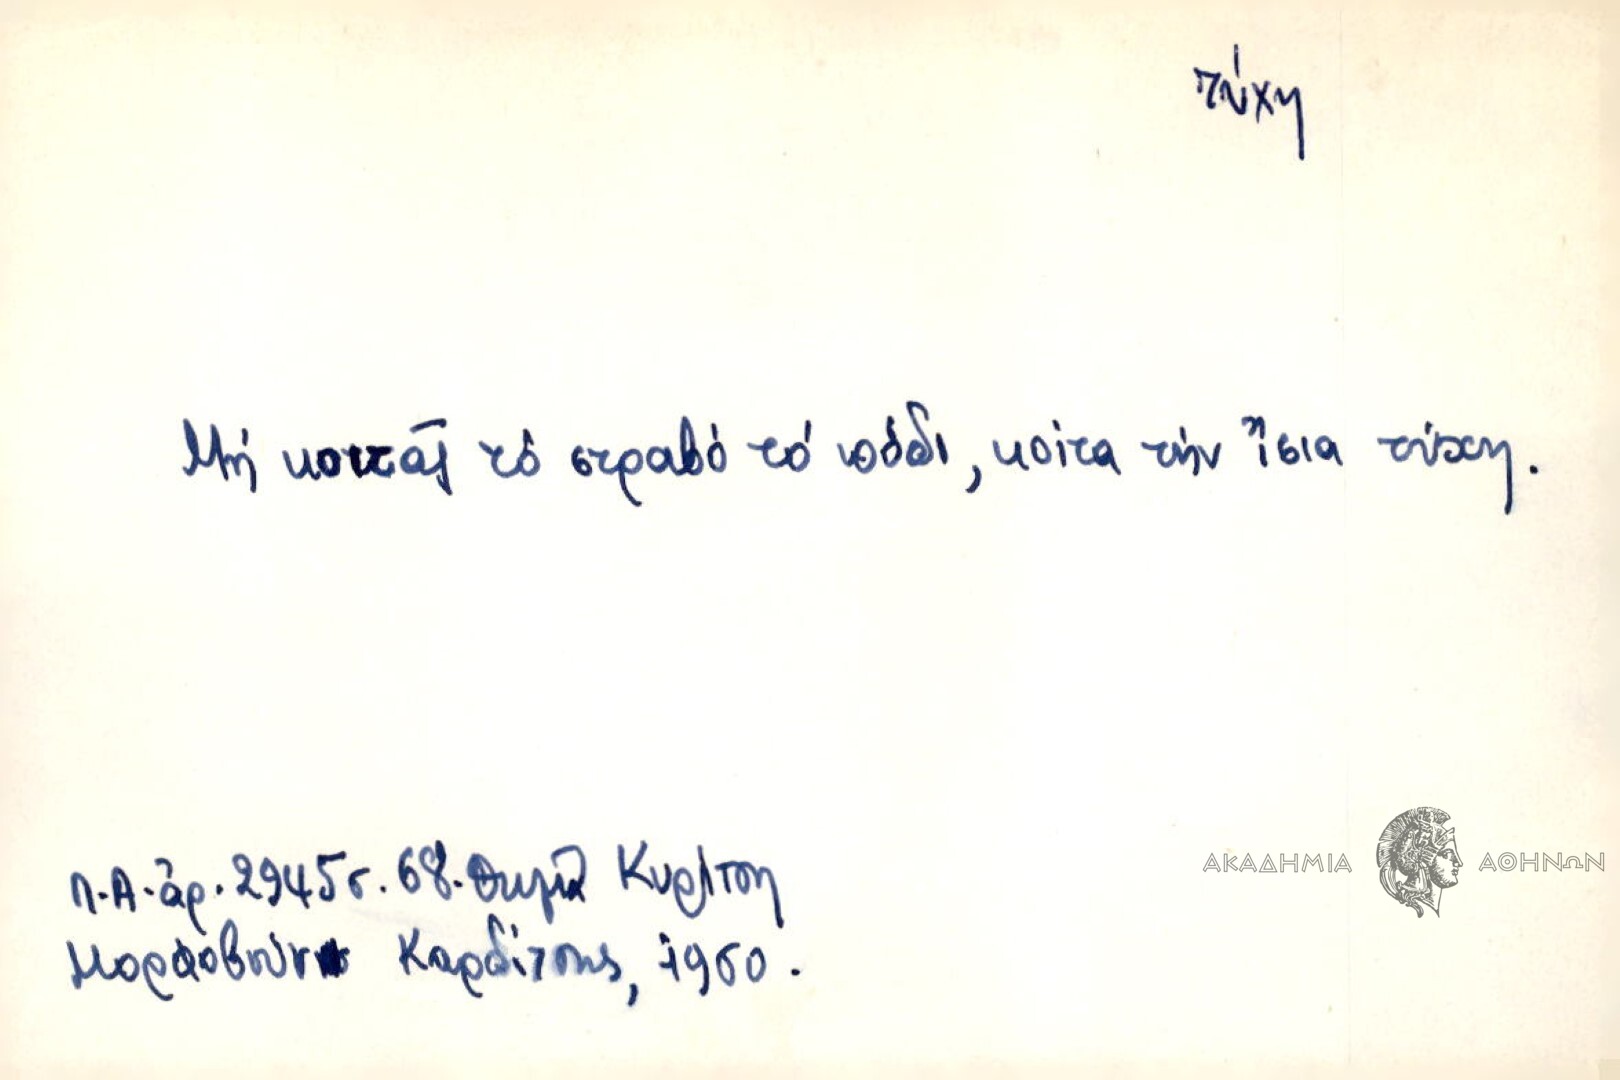 τύχη
Μή κοιτᾶς τό στραβό τό πόδι, κοίτα τήν ἴσια τύχη.
Λ.Α. ἀρ. 2945 σ. 68. Θωμᾶ Κυρίτση
Μορφοβούνι Καρδίτσης, 1960.
ΑΚΑΔΗΜΙΑ ΑΘΗΝΩΝ